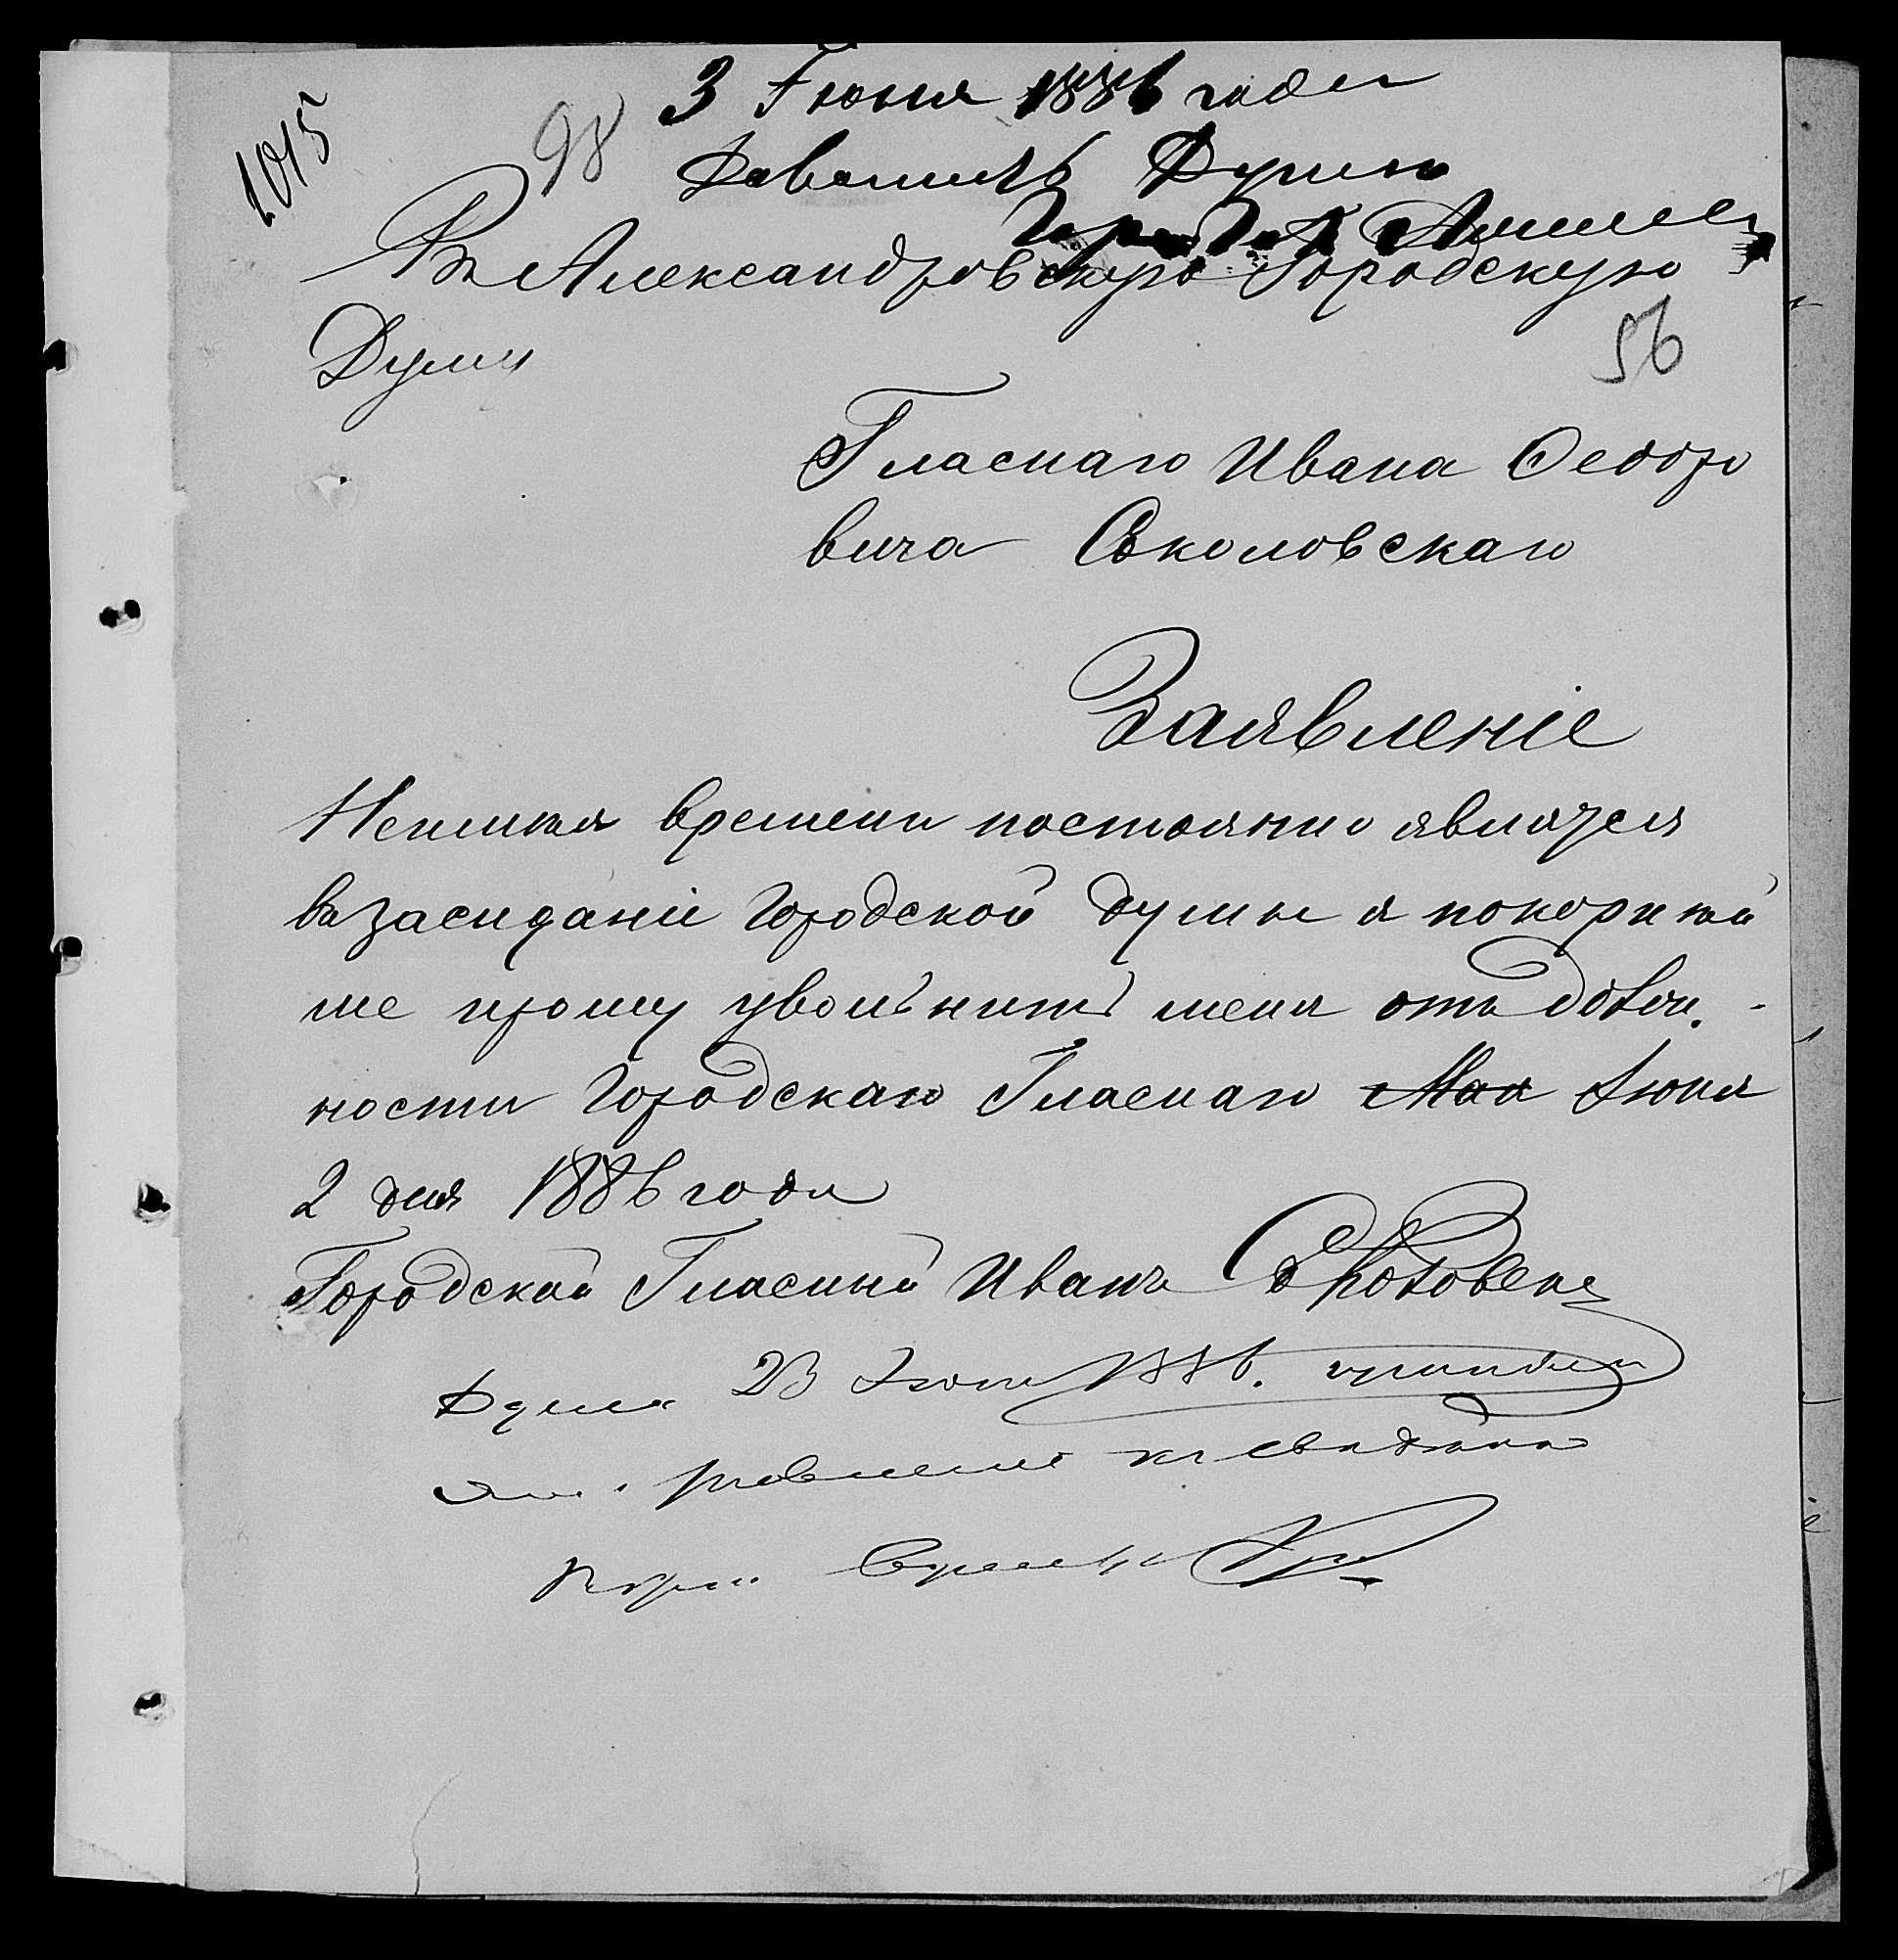 1015
98
3 Іюня 1886 года
Доложить Думе
Въ Александровскую Городскую
Думу
56
Гласнаго Ивана Федоро
вича Соколовскаго
Заявленіе
Неимея времени постоянно являтся
въ заседаніи Городской Думы я покорней
ше прошу увольнить меня отъ долж.
ности Городскаго Гласнаго Мая Июня
2 дня 1886 года
Городской Гласный Иванъ
Дума 23 Іюня 1886.
заявленіе къ сведению